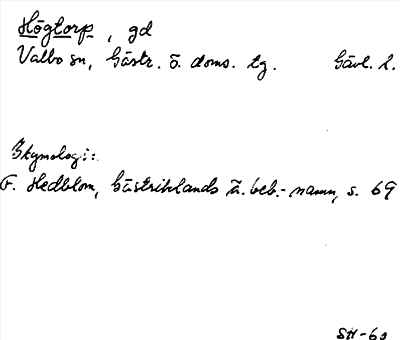 Högtorp, gd
Valbo sn, Gästr. ö. doms. tg. Gävl. l.
Etymologi:
F. Hedblom, Gästriklands ä. beb.-namn, s. 69
SH-60